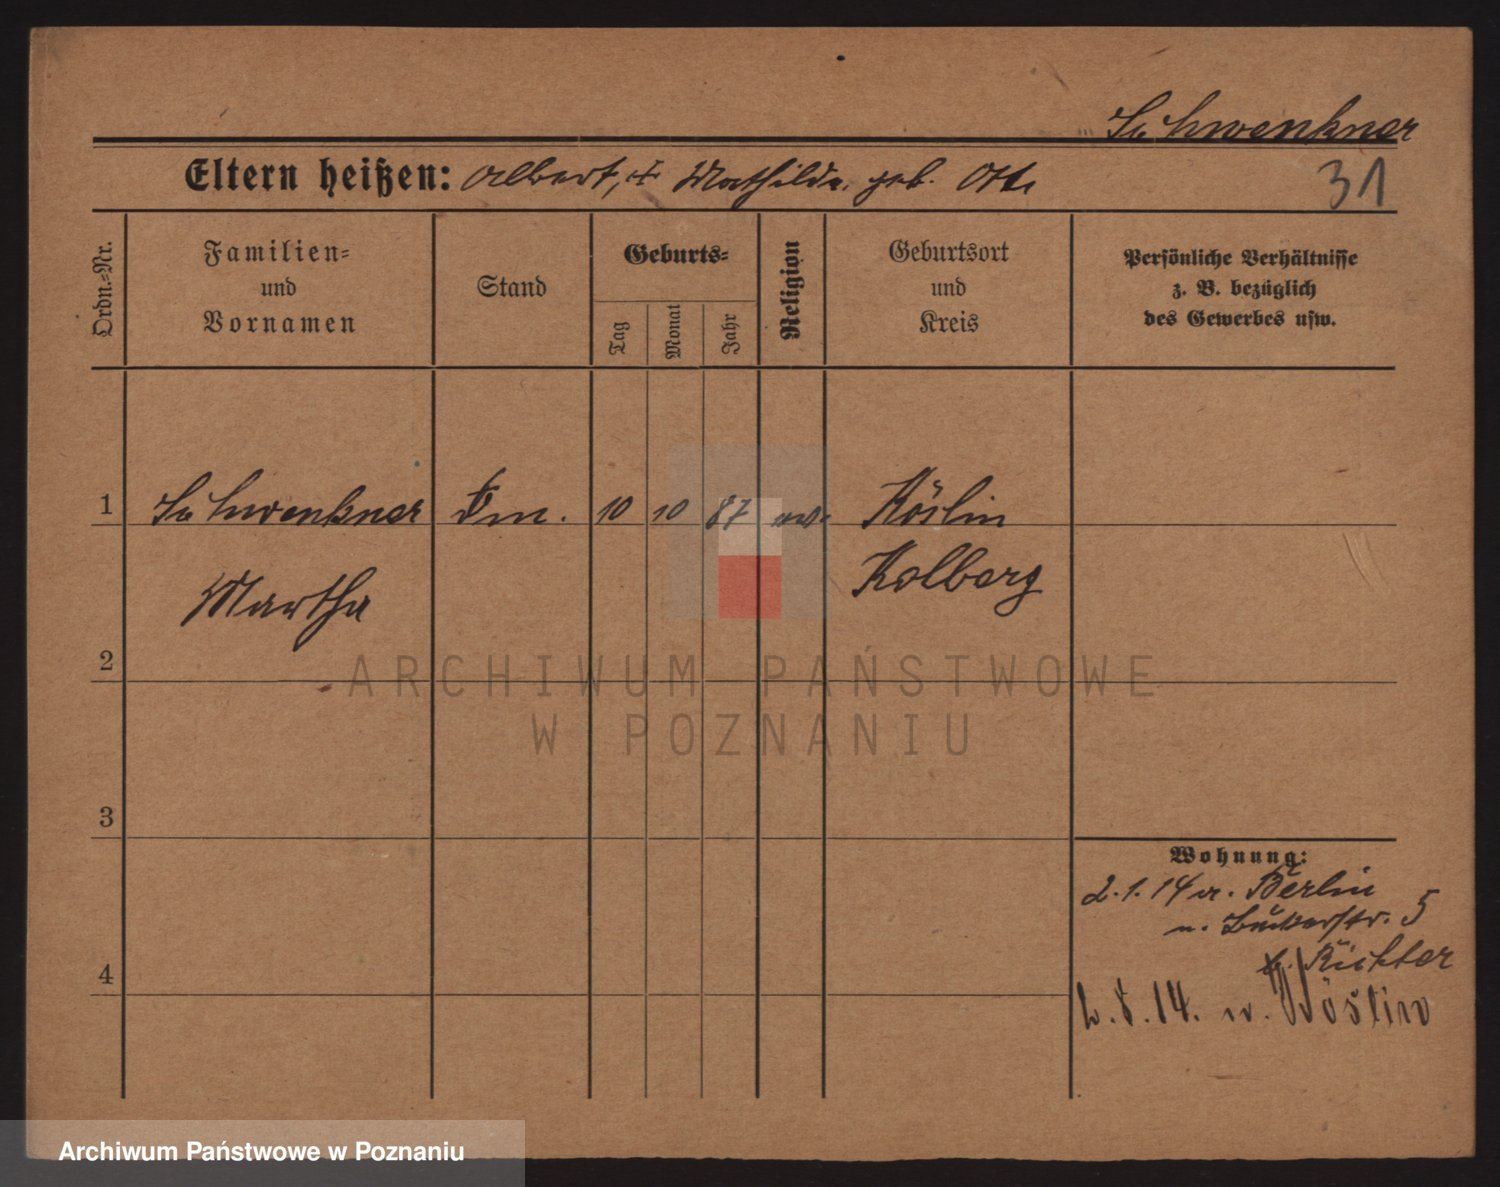 Schwenkner
Eltern heißen: Albert, u. Mathilde geb. Otto
31
Ordn.-Nr.
Familien-
und
Vornamen
Stand
Geburts-
Tag
Monat
Jahr
Religion
Geburtsort
und
Kreis
Persönliche Verhältnisse
z. B. bezüglich
des Gewerbes usw.
1 Schwenkner 10 10 87 ev. Köslin
Martha Kolberg
2
ARCHIWUM PAŃSTWOWE
W POZNANIU
3
Wohnung:
2.1.14 a. Berlin
5
b. Richter
4
8.14. n. Köslin
Archiwum Państwowe w Poznaniu